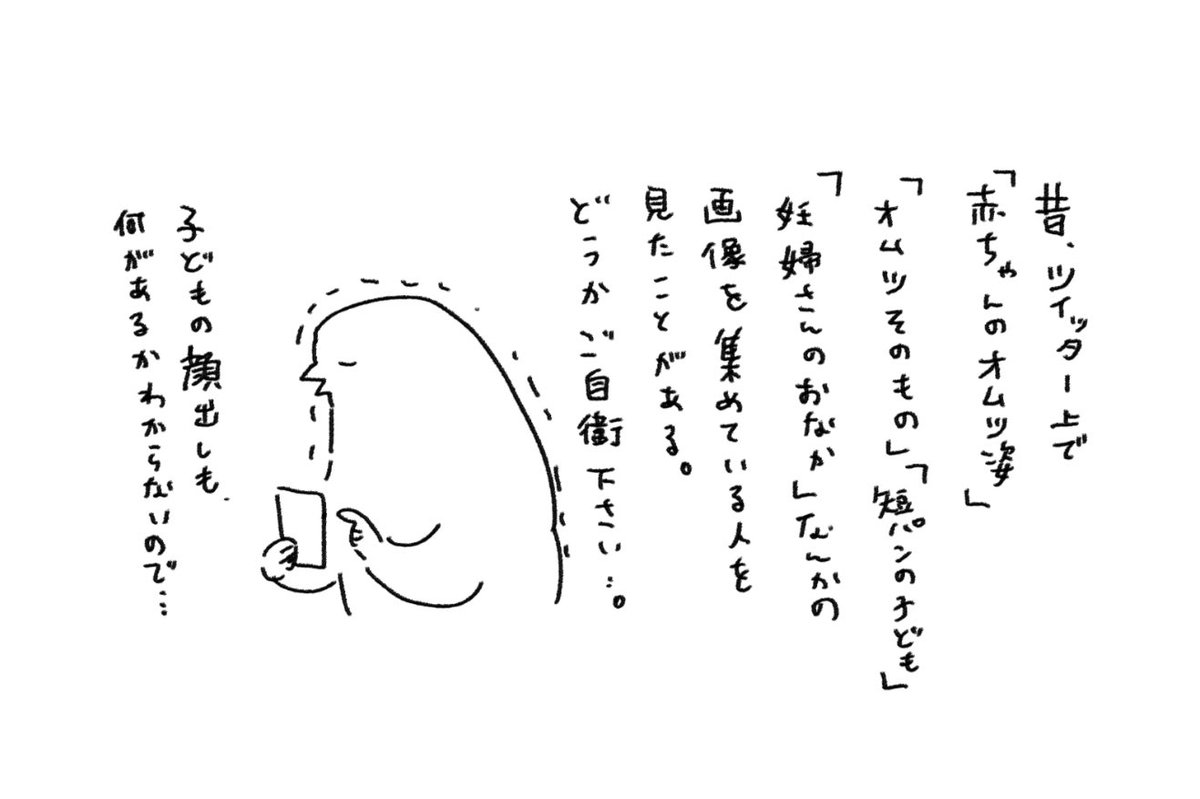 昔、ツイッター上で
「赤ちゃんのオムツ姿」
「オムツそのもの」「短パンの子ども」
「妊婦さんのおなか」なんかの
画像を集めている人を
見たことがある。
どうかご自衛下さい…。
子どもの顔出しも、
何があるかわからないので…